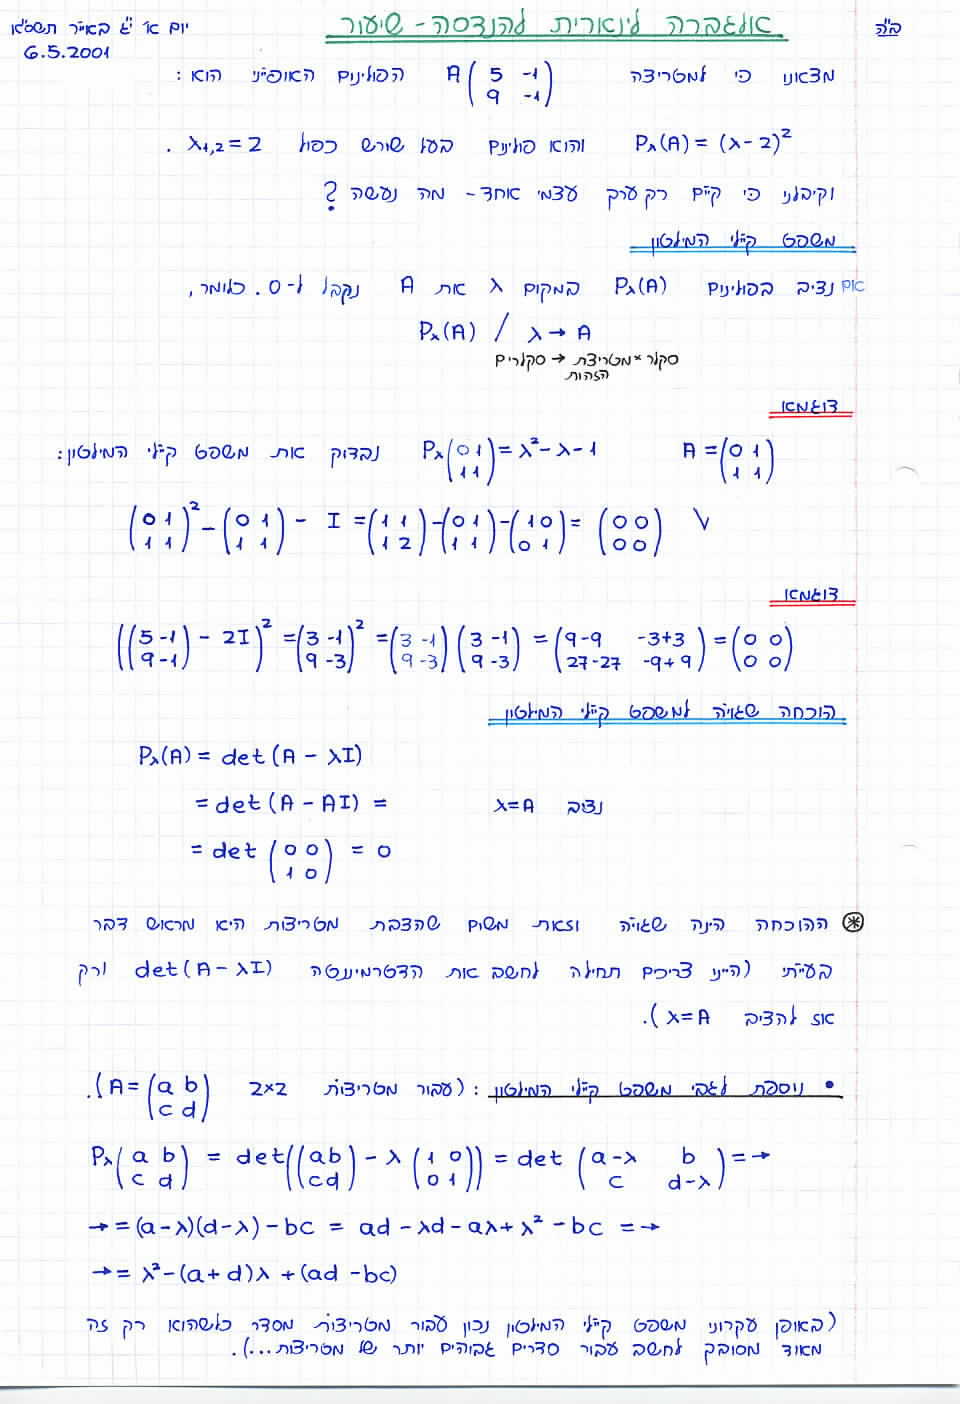 ב"ה
אלגברה לינארית להנדסה - שיעור
יום א' י"ג באייר תשס"א
6.5.2001
מצאנו כי למטריצה A(5 -1 / 9 -1) הפולינום האופייני הוא:
Pλ(A) = (λ-2)² והוא פולינום בעל שורש כפול λ1,2 = 2 .
וקיבלנו כי קיים רק ערך עצמי אחד - מה נעשה?
משפט קיילי המילטון
אם נציב בפולינום Pλ(A) במקום λ את A נקבל ל-0. כלומר,
Pλ(A) / λ → A
סקלרים → סקלר × מטריצת
הזהות
דוגמא
A = (0 1 / 1 1) Pλ(0 1 / 1 1) = λ² - λ - 1 נבדוק את משפט קיילי המילטון:
(0 1 / 1 1)² - (0 1 / 1 1) - I = (1 1 / 1 2) - (0 1 / 1 1) - (1 0 / 0 1) = (0 0 / 0 0) √
דוגמא
((5 -1 / 9 -1) - 2I)² = (3 -1 / 9 -3)² = (3 -1 / 9 -3)(3 -1 / 9 -3) = (9-9 -3+3 / 27-27 -9+9) = (0 0 / 0 0)
הוכחה שגויה למשפט קיילי המילטון
Pλ(A) = det(A - λI)
= det(A - AI) = נציב λ=A
= det(0 0 / 1 0) = 0
⊛ ההוכחה הינה שגויה וזאת משום שהצבת מטריצות היא מראש דבר
בעייתי (היינו צריכים תחילה לחשב את הדטרמיננטה det(A-λI) ורק
אז להציב λ=A).
• נוספת לגבי משפט קיילי המילטון: (עבור מטריצות 2×2 A = (a b / c d)).
Pλ(a b / c d) = det((a b / c d) - λ(1 0 / 0 1)) = det(a-λ b / c d-λ) = →
→ = (a-λ)(d-λ) - bc = ad - λd - aλ + λ² - bc = →
→ = λ² - (a+d)λ + (ad - bc)
(באופן עקרוני משפט קיילי המילטון נכון עבור מטריצות מסדר כלשהוא רק זה
מאוד מסובך לחשב עבור סדרים גבוהים יותר של מטריצות...).